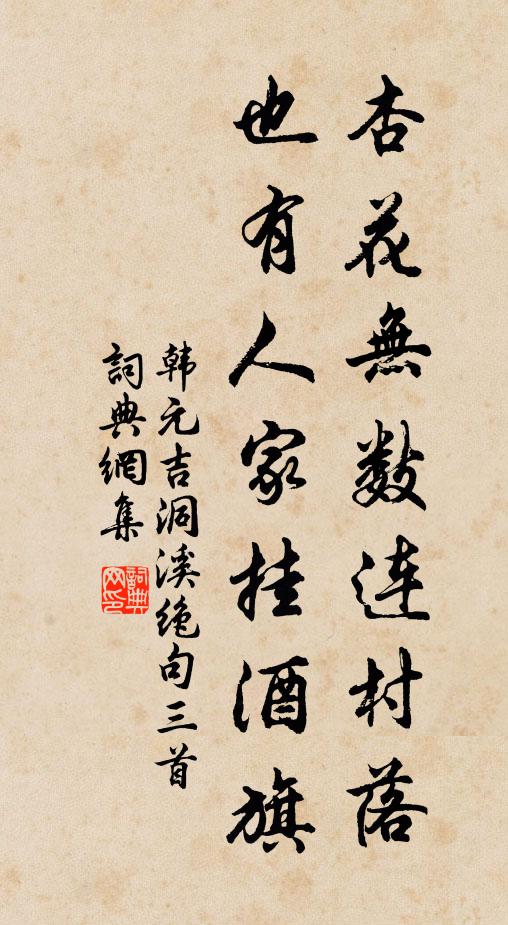 杏花無數連村落
也有人家挂酒旗
韩元吉洞溪绝句三首
詞典網集
詞典网印